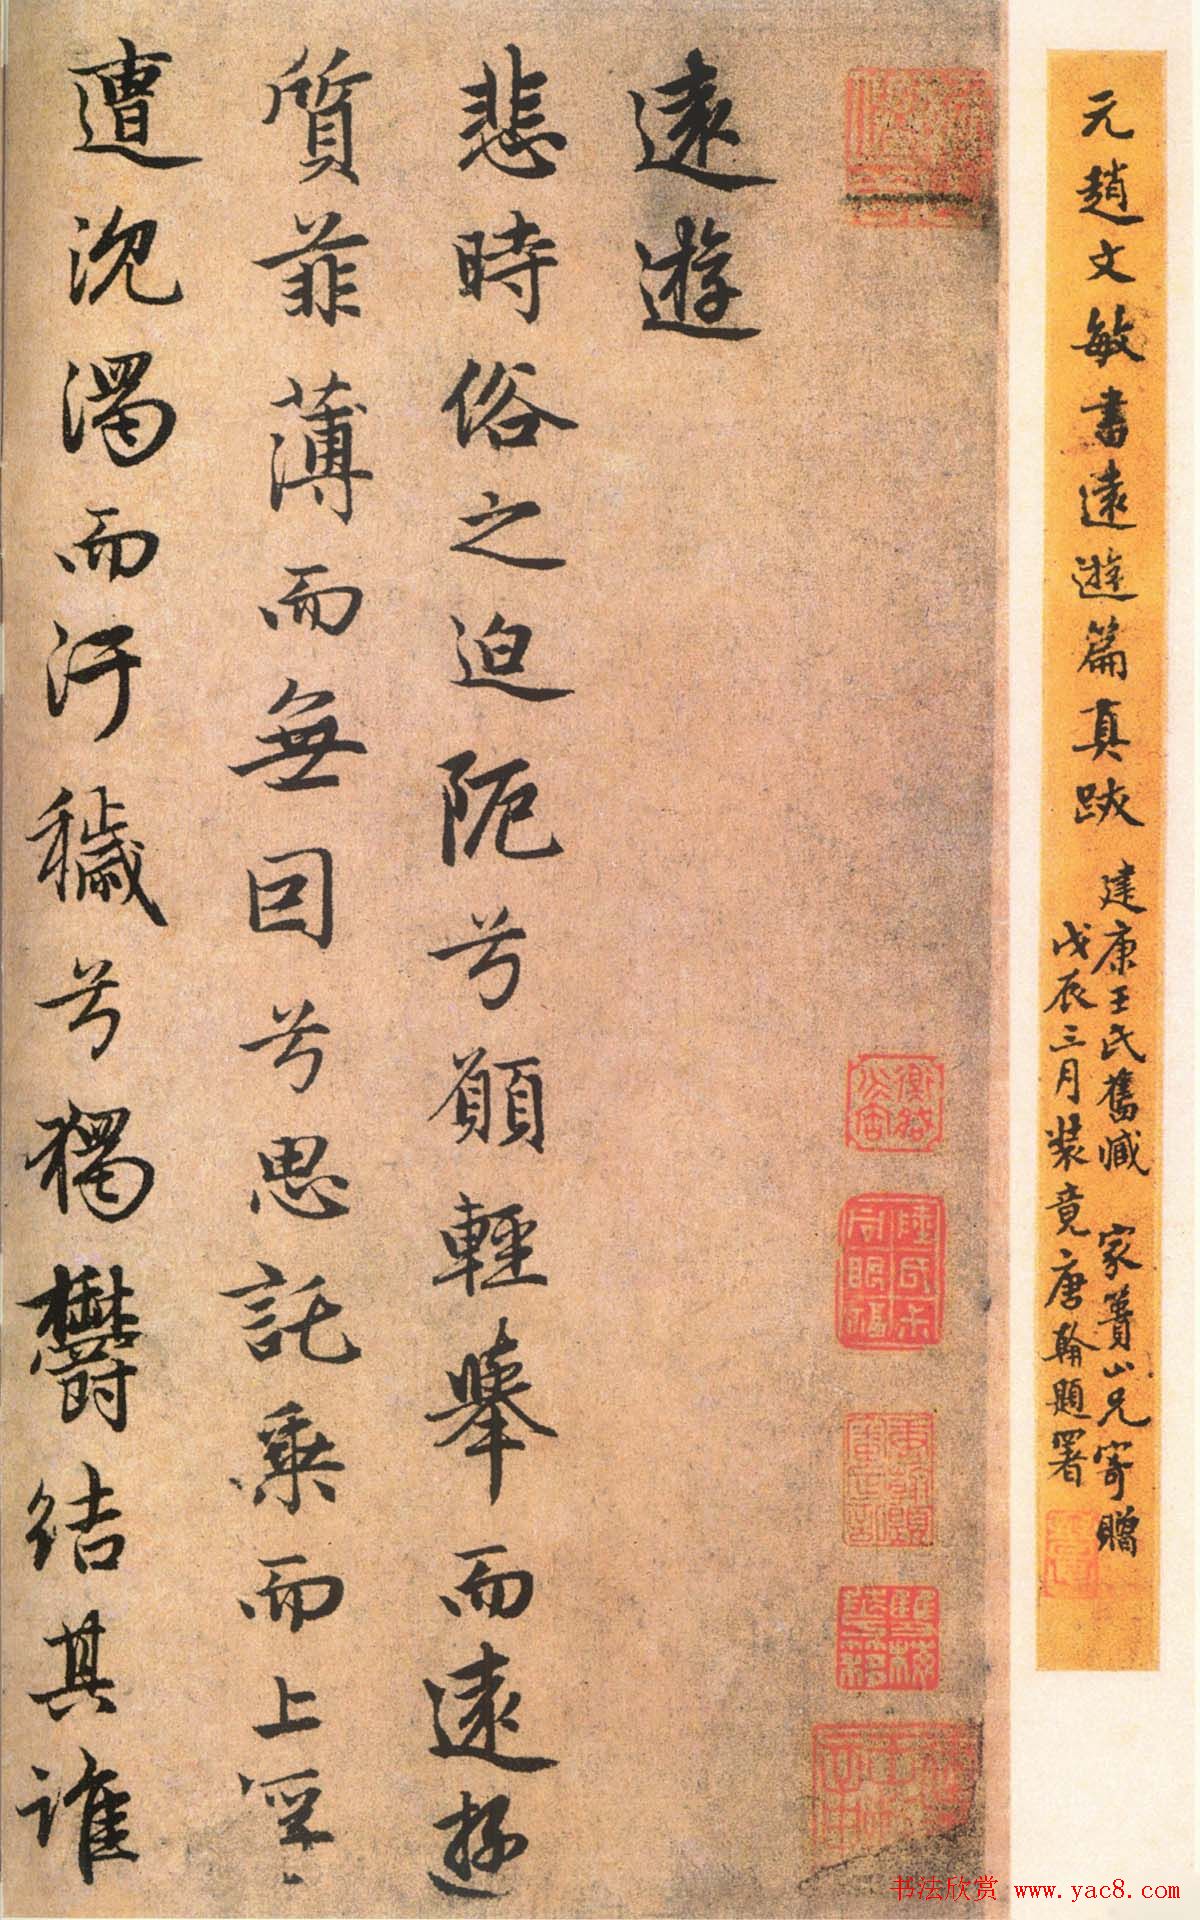 元趙文敏書遠遊篇真跡
建康王氏舊藏 家蕢山兄寄贈
戊辰三月装竟唐翰題署
遠遊
悲時俗之迫阨兮願輕舉而遠遊
質菲薄而無因兮思託乘而上浮
遭沈濁而汙穢兮獨鬱結其誰
书法欣赏 www.yac8.com